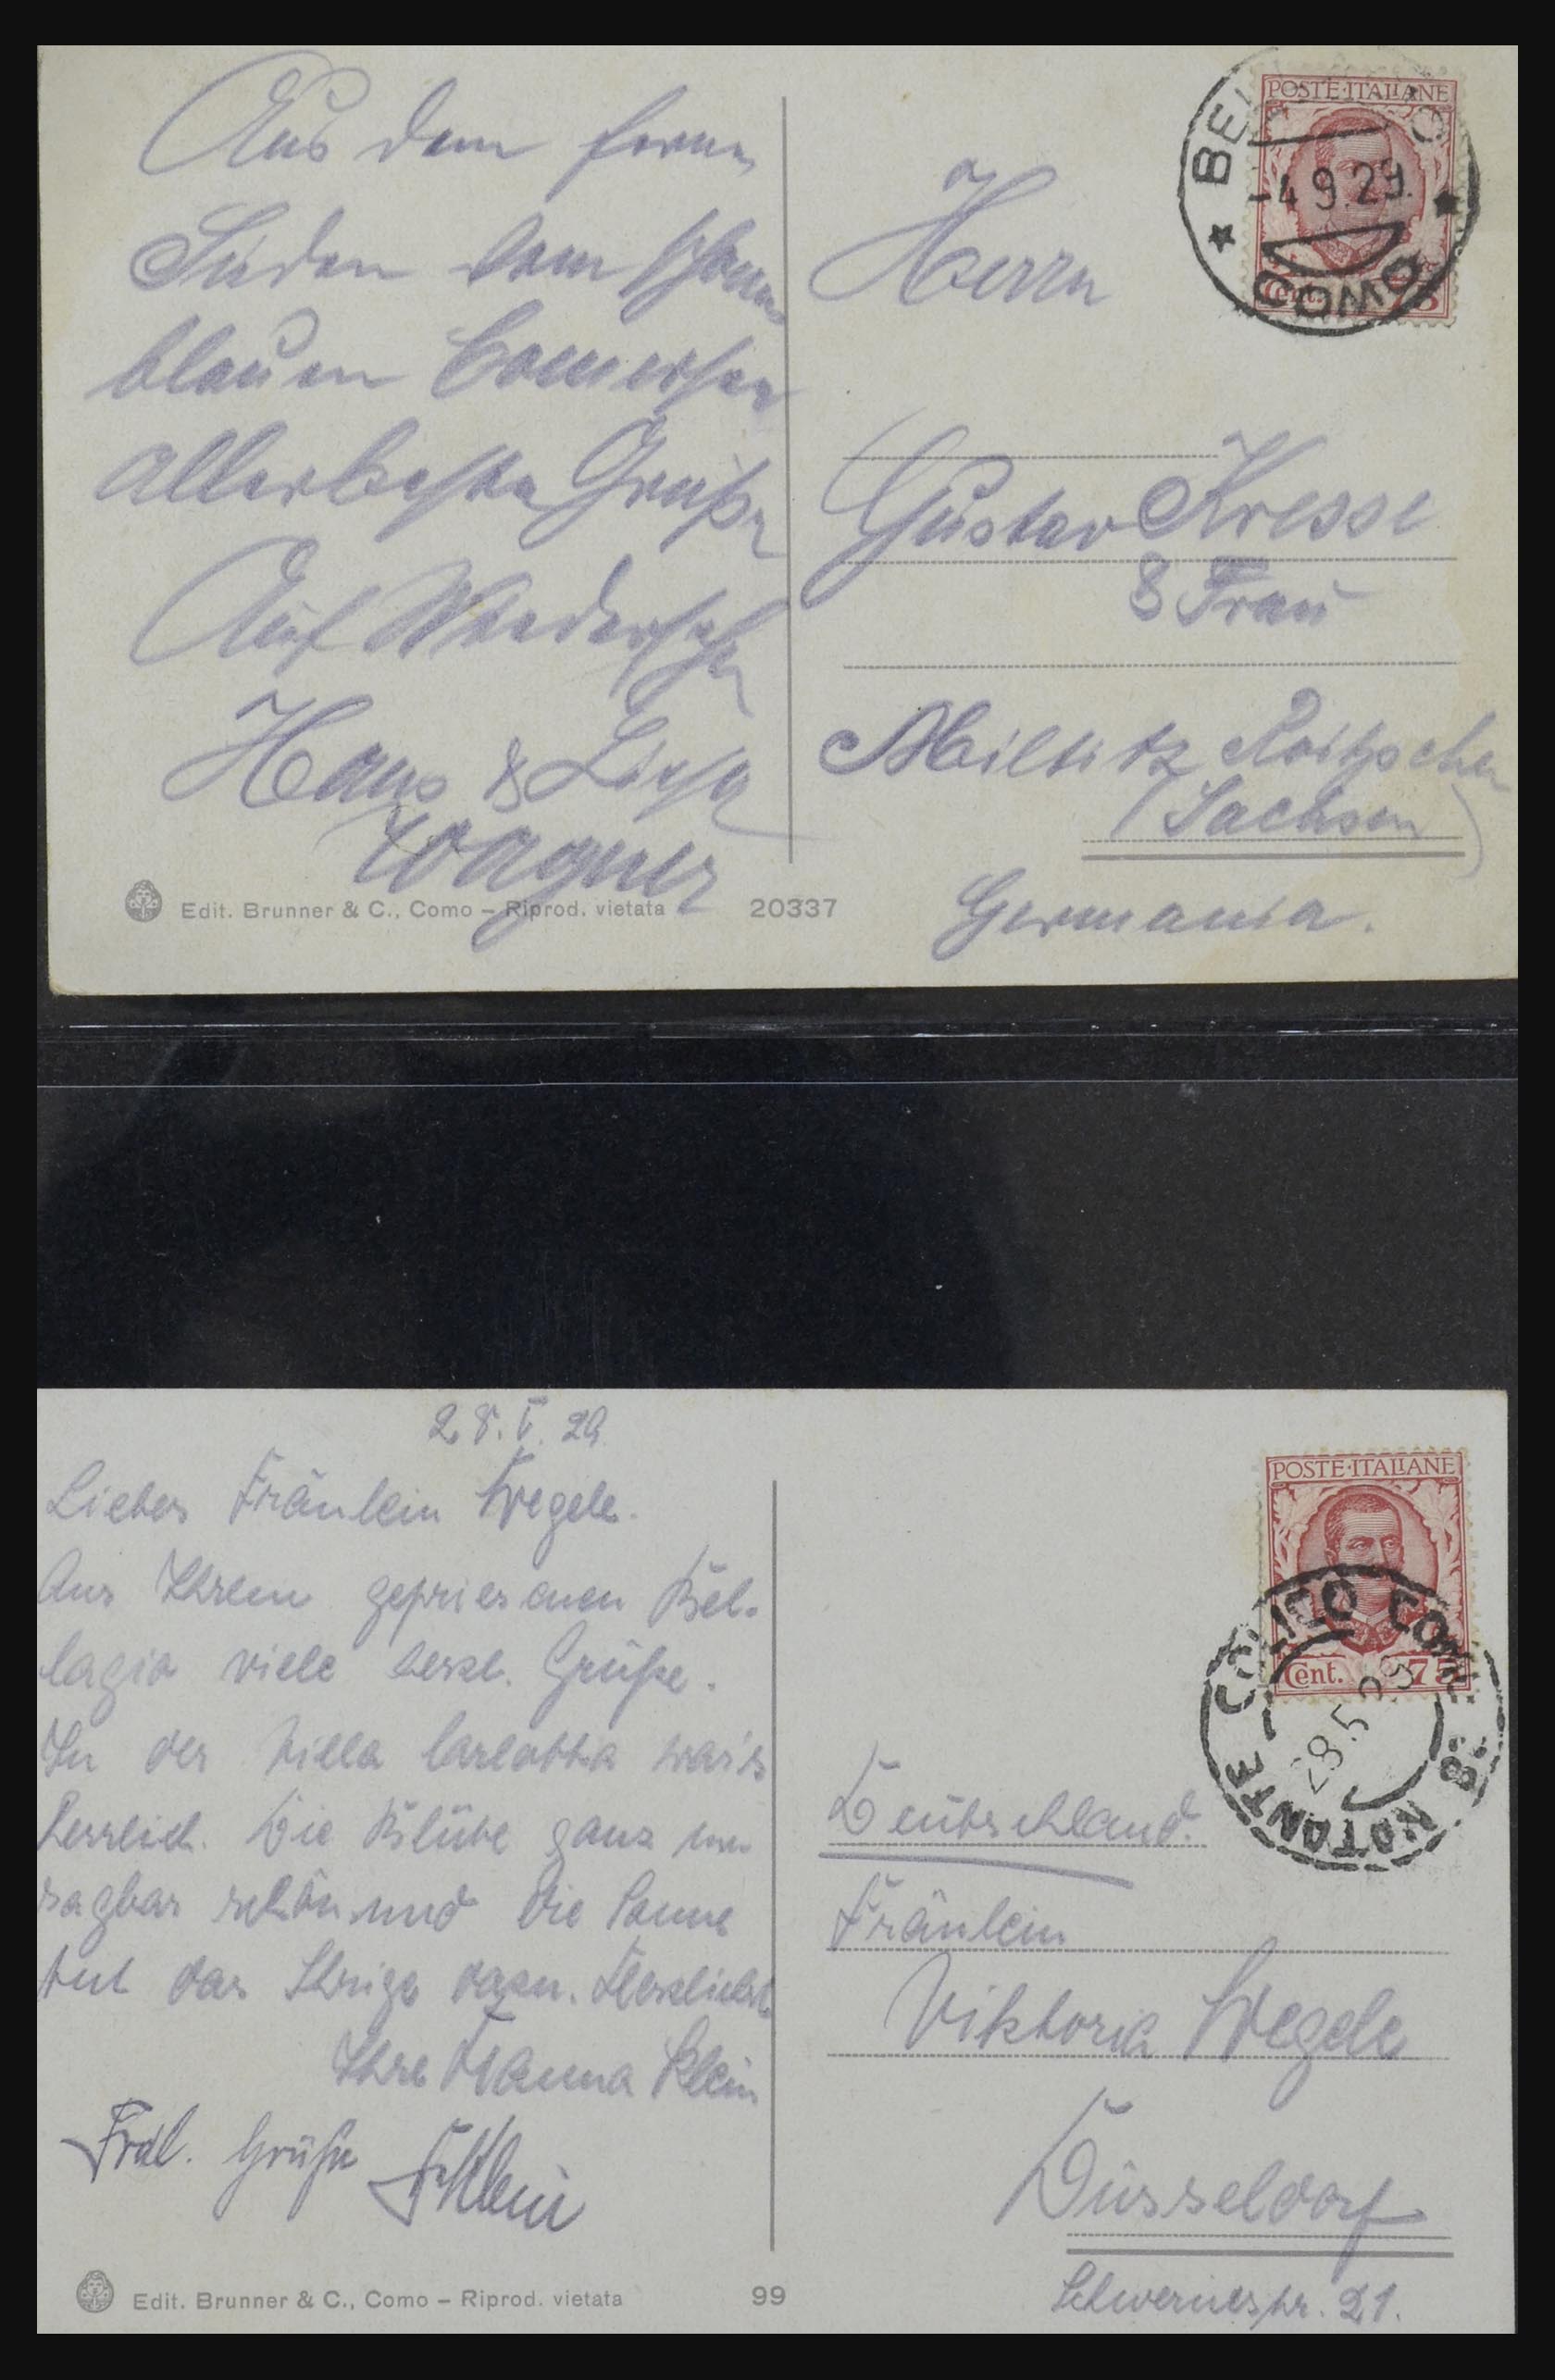 Aus dem fernen
Süden vom schönen
blauen Comersee
allerbeste Grüße
Auf Wiedersehen
Hans & Liesa
Wagner
POSTE·ITALIANE
-4 9.29.
COMO
Cent. 75
Herrn
Gustav Kresse
& Frau
Miltitz Roitzschen
(Sachsen)
Germania.
Edit. Brunner & C., Como – Riprod. vietata 20337
28.V.29
Liebes Fräulein Wegele.
Aus Ihrem gepriesenen Bel-
lagio viele herzl. Grüße.
In der Villa Carlotta war's
herrlich. Die Blüte ganz un-
sagbar schön und die Sonne
tut das Ihrige dazu. Herzlichst
Ihre Hanna Klein
Frdl. Grüße
Klein
POSTE·ITALIANE
Cent. 75
COLICO COMO
28.5.29
NATANTE
Deutschland.
Fräulein
Viktoria Wegele
Düsseldorf
Schwerinstr. 21.
Edit. Brunner & C., Como – Riprod. vietata 99